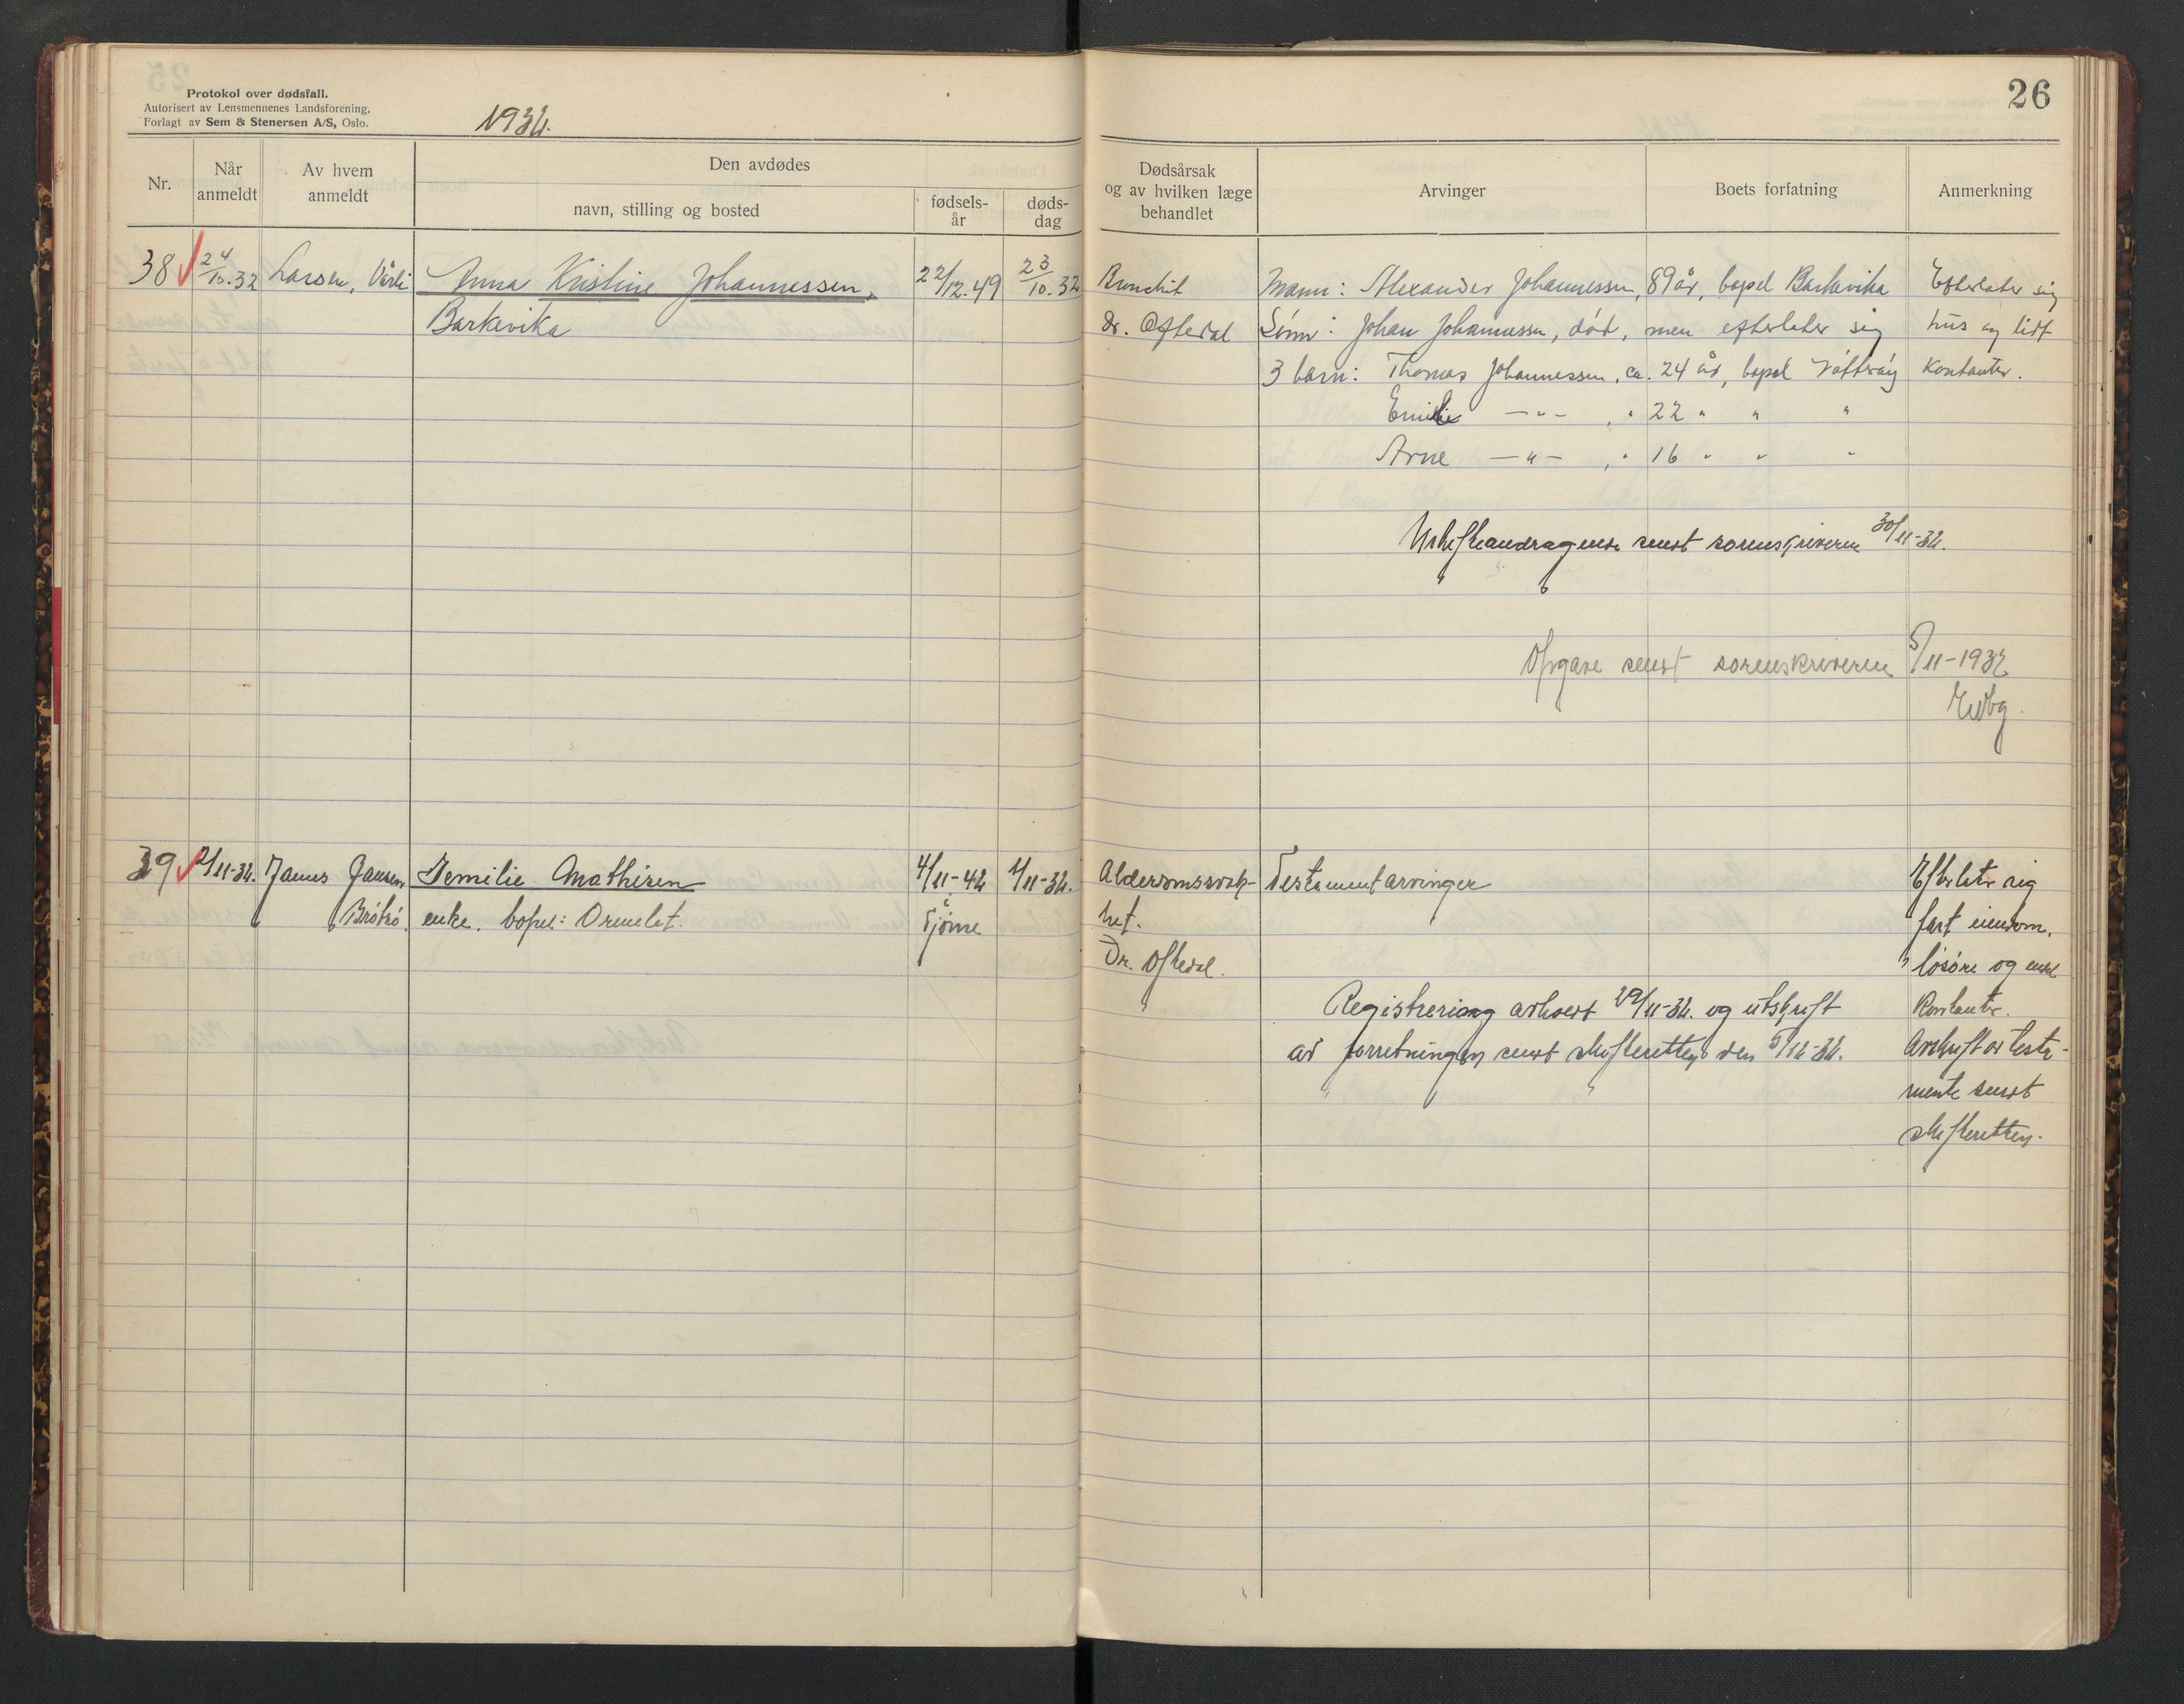 Protokol over dødsfall.
Autorisert av Lensmennenes Landsforening.
Forlagt av Sem & Stenersen A/S, Oslo.
1932.
26
Nr.
Når anmeldt
Av hvem anmeldt
Den avdødes
navn, stilling og bosted
fødsels-år
døds-dag
Dødsårsak og av hvilken læge behandlet
Arvinger
Boets forfatning
Anmerkning
38 24/10.32 Larsen, Vårli Anna Kristine Johannessen, 22/12.49 23/10.32 Bronchit Mann: Alexander Johannessen, 89 år, bopel Barkevika Efterlater sig
Barkevika dr. Oftedal Sønn: Johan Johannessen, død, men efterlater sig hus og lidt
3 barn: Thomas Johannessen, ca. 24 år, bopel kontanter.
Emilie —"— , " 22 " " "
Arne —"— , " 16 " " "
Uskifteandragende sendt sorenskriveren 30/11-32.
Opgave sendt sorenskriveren 5/11-1932
39 2/11-32. James Jansen Jemilie Mathisen 4/11-42 1/11-32. Alderdomssvak- Testamentarvinger Efterlater sig
Brøtsø. enke. bopel: Ormelet. i Tjøme het. fast eiendom,
Dr. Oftedal. løsøre og endel
Registrering avholdt 29/11-32. og utskrift kontanter.
av forretningen sendt skifteretten den 5/12-32. Avskrift av testa-
mente sendt
skifteretten.